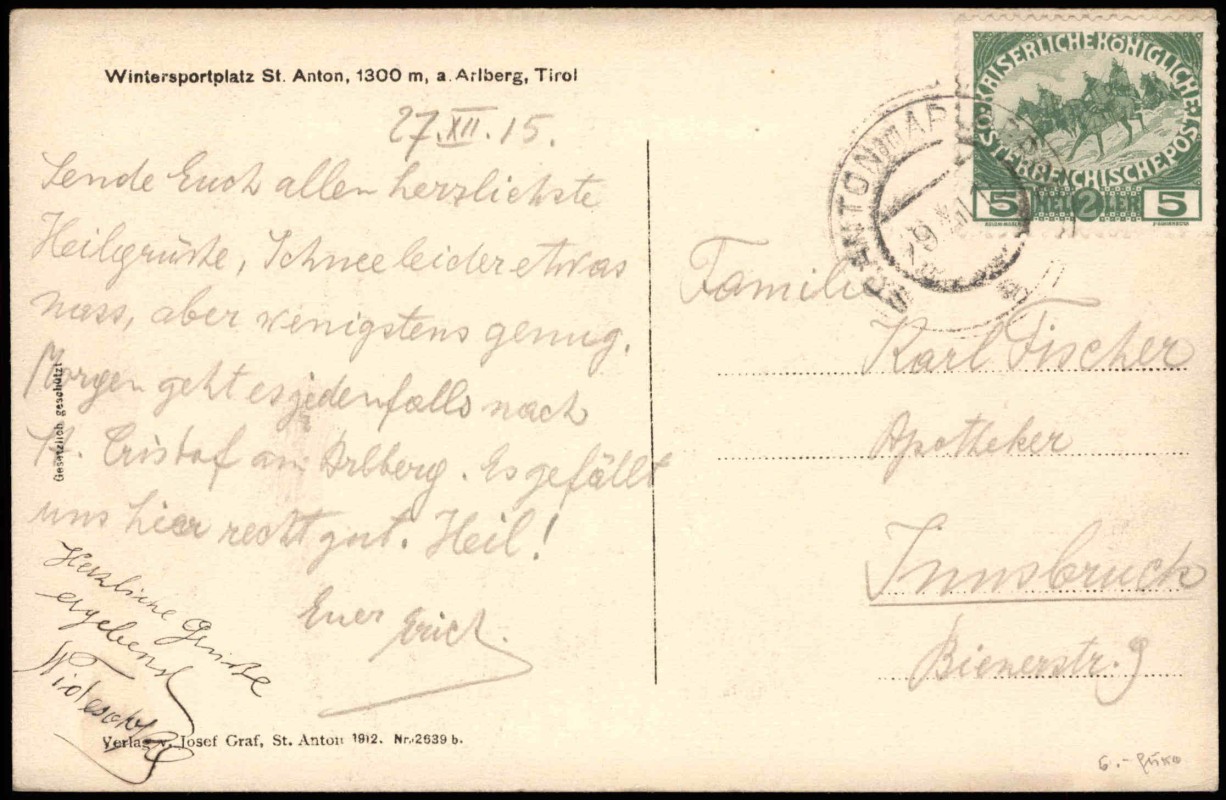 Wintersportplatz St. Anton, 1300 m, a. Arlberg, Tirol
27.XII.15.
Sende Euch allen herzlichste
Heilgrüße, Schnee leider etwas
nass, aber wenigstens genug.
Morgen geht es jedenfalls nach
St. Cristof am Arlberg. Es gefällt
uns hier recht gut. Heil!
Euer Erich.
Herzliche Grüße
ergebenst
Gesetzlich geschützt
Verlag v. Josef Graf, St. Anton 1912. Nr. 2639 b.
KAISERLICHE KÖNIGLICHE
ÖSTERREICHISCHE POST
5 HELLER 5
2
ST. ANTON
Familie
Karl Fischer
Apotheker
Innsbruck
Bienerstr. 9
6.-